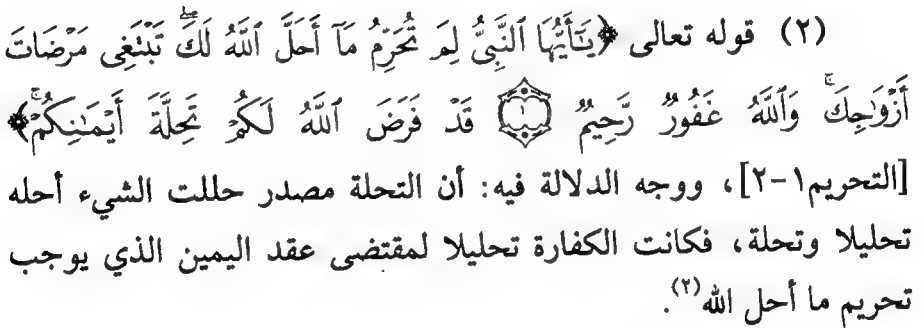 (٢) قوله تعالى ﴿يَـٰٓأَيُّهَا ٱلنَّبِىُّ لِمَ تُحَرِّمُ مَآ أَحَلَّ ٱللَّهُ لَكَ ۖ تَبْتَغِى مَرْضَاتَ
أَزْوَٰجِكَ ۚ وَٱللَّهُ غَفُورٌ رَّحِيمٌ ۝١ قَدْ فَرَضَ ٱللَّهُ لَكُمْ تَحِلَّةَ أَيْمَـٰنِكُمْ ۚ﴾
[التحريم١-٢]، ووجه الدلالة فيه: أن التحلة مصدر حللت الشيء أحله
تحليلا وتحلة، فكانت الكفارة تحليلا لمقتضى عقد اليمين الذي يوجب
تحريم ما أحل الله(٢).